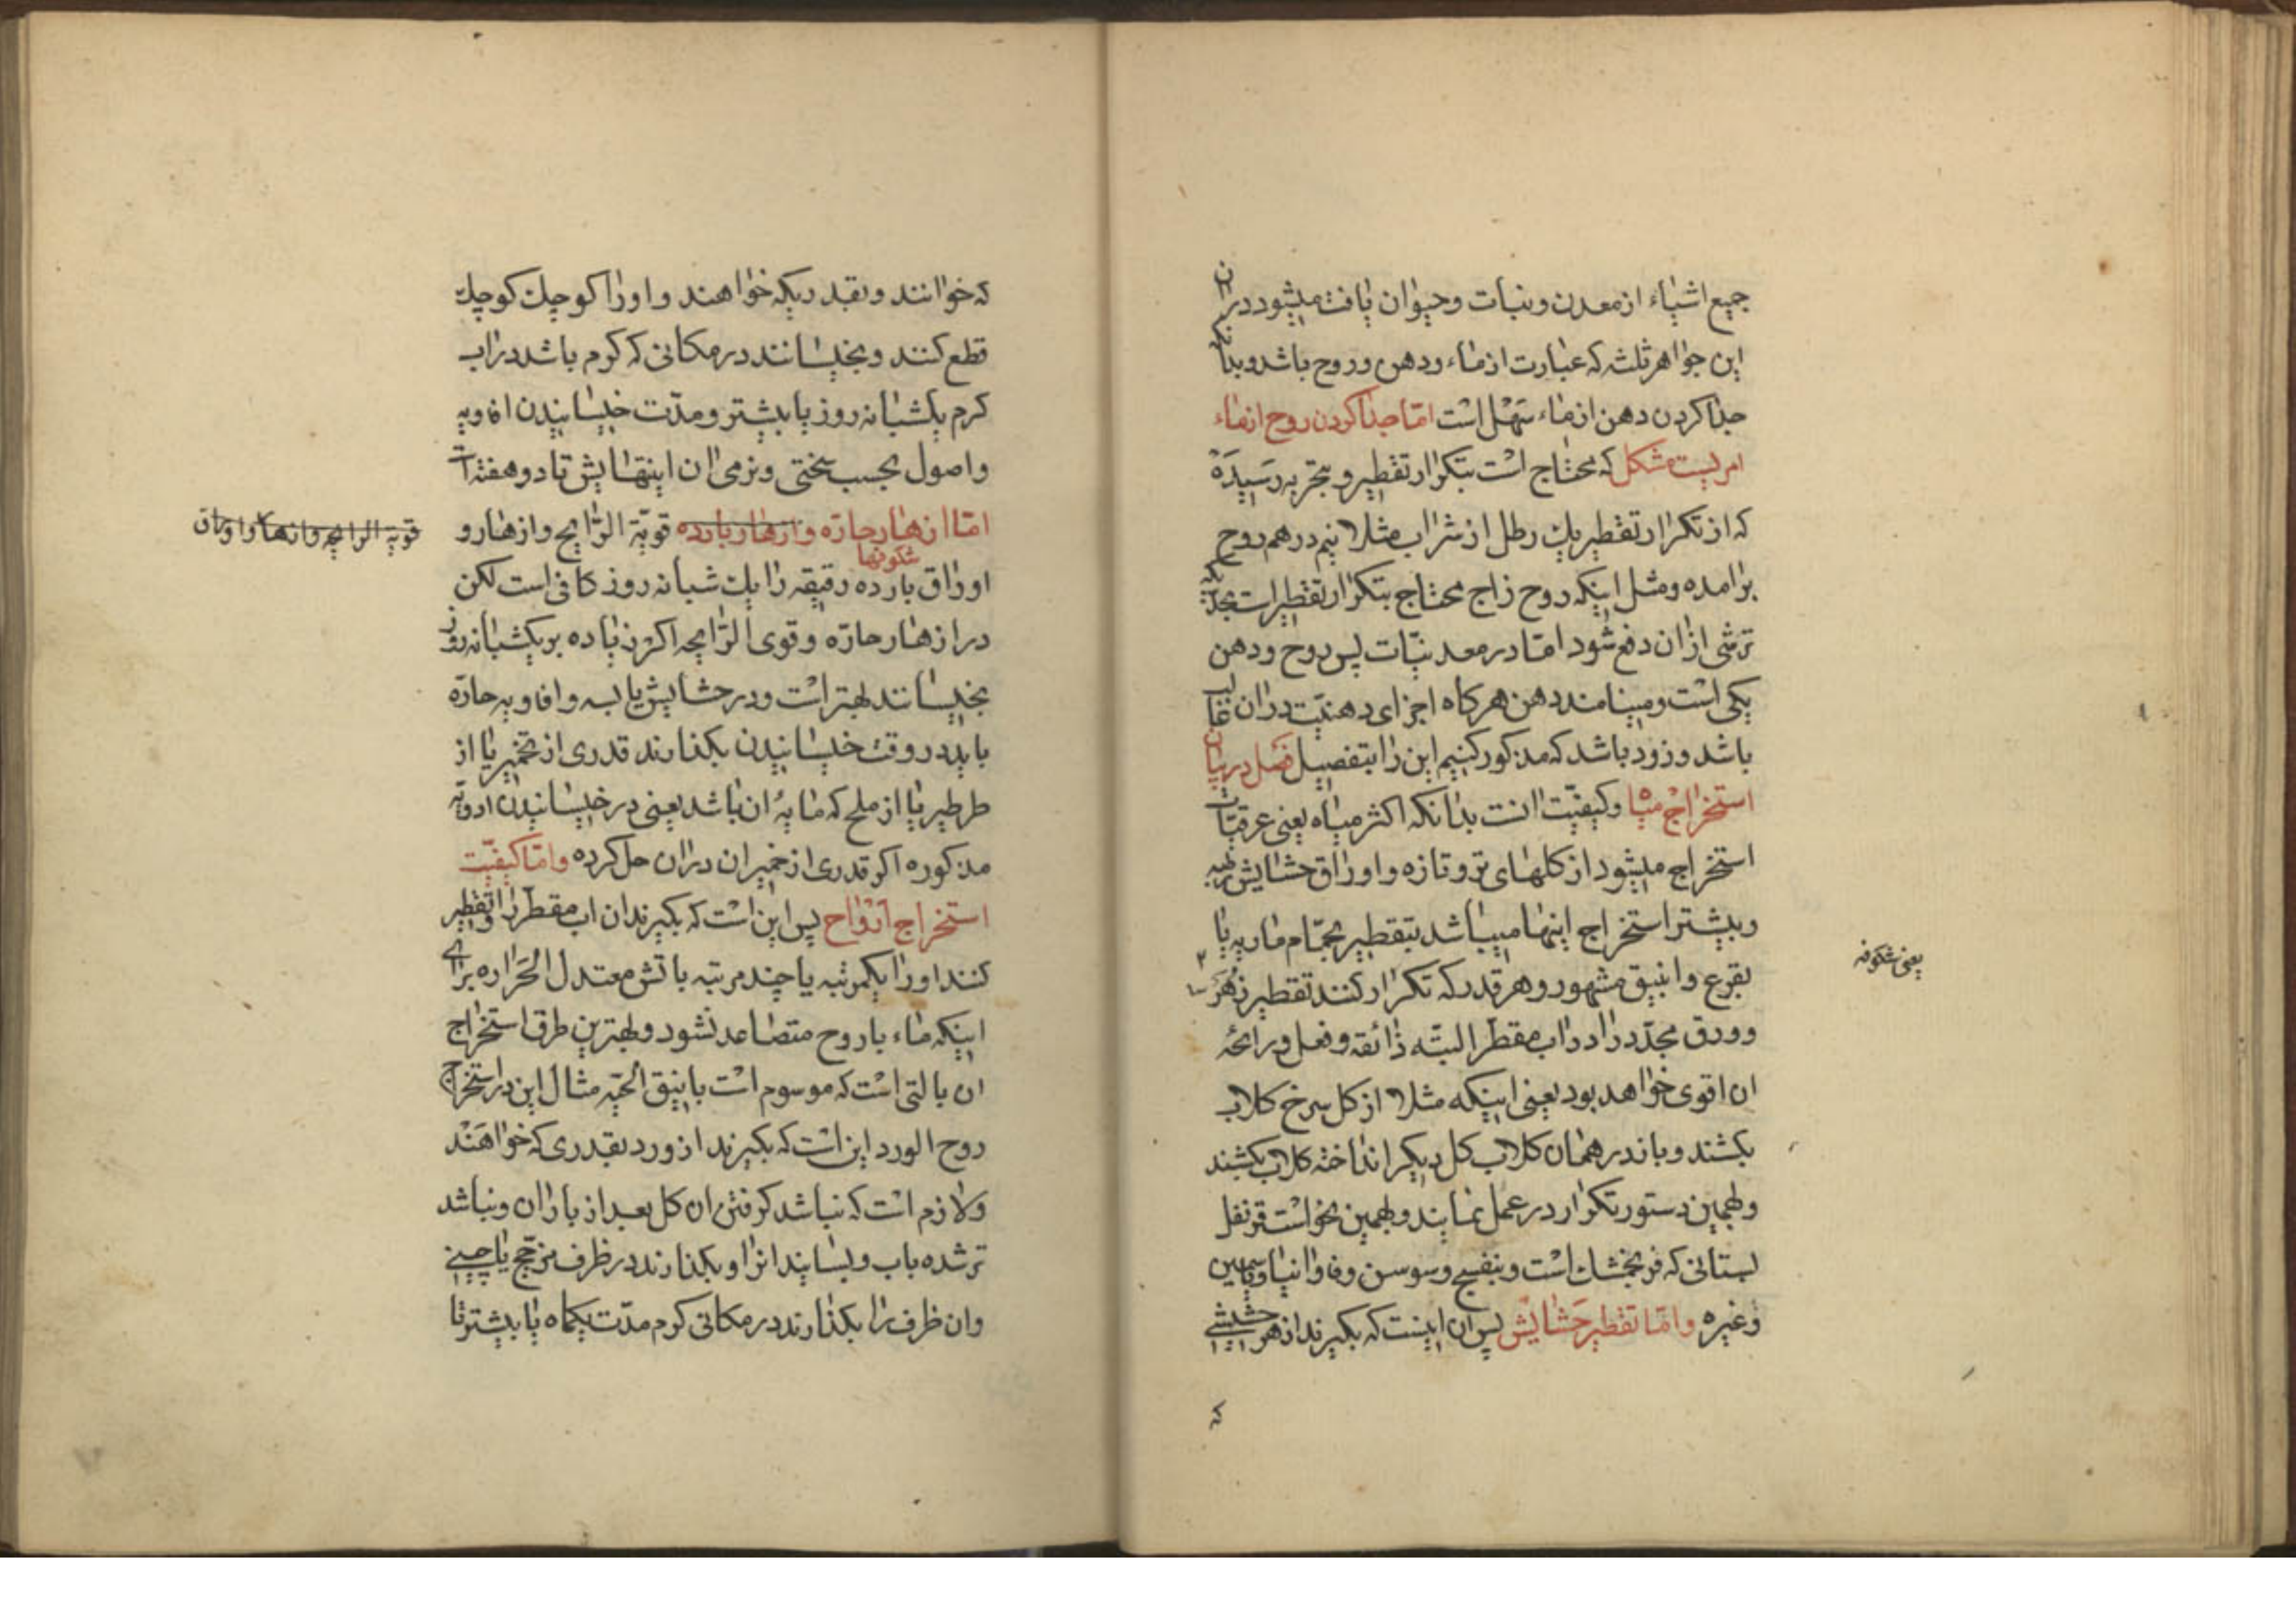 جمیع اشیاء از معدن و نبات و حیوان یافت میشود در ان
این جواهر ثلثه که عبارت از ماء و دهن و روح باشد و بدانکه
جدا کردن دهن از ماء سهل است امّا جدا کردن روح از ماء
امریست مشکل که محتاج است بتکرار تقطیر و بتجربه رسیده
که از تکرار تقطیر یك رطل از شراب مثلا نیم درهم روح
برامده و مثل اینکه روح زاج محتاج بتکرار تقطیر است بحدّیکه
ترشی از ان دفع شود امّا در معدنیّات پس روح و دهن
یکی است و مینامند دهن هرکاه اجزای دهنیّت در ان غالب
باشد و زود باشد که مذکور کنیم این را بتفصیل فصل در بیان
استخراج میاه و کیفیّت انت بدانکه اکثر میاه یعنی عرقیّات
استخراج میشود از کلهای تر و تازه و اوراق حشایش رطبه
و بیشتر استخراج اینها میباشد بتقطیر بحمّام ماریه یا
بقرع و انبیق مشهور و هر قدر که تکرار کنند تقطیر زهر
یعنی شکوفه
و ورق مجدّد را در اب مقطّر البتّه ذائقه و فعل و رائحهٔ
ان اقوی خواهد بود یعنی اینکه مثلا از کل سرخ کلاب
بکشند و باز در همان کلاب کل دیکر انداخته کلاب بکشند
و بهمین دستور تکرار در عمل نمایند و بهمین نحو است قرنفل
بستانی که فرنجمشك است و بنفسج و سوسن و فاوانیا و یاسمین
و غیره و امّا تقطیر حشایش پس ان اینست که بکیرند از هر حشیشی
که
که خوانند و بقدریکه خواهند و او را کوچك کوچك
قطع کنند و بخیسانند در مکانی که کرم باشد در اب
کرم یکشبانه روز یا بیشتر و مدّت خیسانیدن افاویه
و اصول بحسب سختی و نرمی ان اینتهایش تا دو هفته است
امّا ازهار حارّه و ازهار بارده قویّة الرّایح و ازهار و
قویّة الرایحه و ازهار و اوراق
شکوفها
اوراق بارده رقیقه را یك شبانه روز کافی است لکن
در ازهار حارّه و قوی الرّایحه اکر زیاده بر یکشبانه روز
بخیسانند بهتر است و در حشایش یابسه و افاویه حارّه
باید در وقت خیسانیدن بکذارند قدری از تخمیر یا از
طرطیر یا از ملح که مایهٔ ان باشد یعنی در خیسانیدن ادویّه
مذکوره اکر قدری از خمیر ان در ان حل کرده و امّا کیفیّت
استخراج ارواح پس این است که بکیرند ان اب مقطّر را و تقطیر
کنند او را یکمرتبه یا چند مرتبه باتش معتدل الحراره برای
اینکه ماء با روح متصاعد نشود و بهترین طرق استخراج
ان بالتی است که موسوم است بانبیق الحیّه مثال این در استخراج
روح الورد این است که بکیرند از ورد بقدری که خواهند
و لازم است که نباشد کرفتن ان کل بعد از باران و نباشد
تر شده باب و بسایند انرا و بکذارند در ظرف مزجّج یا چینی
و ان ظرف را بکذارند در مکانی کرم مدّت یکماه یا بیشتر تا